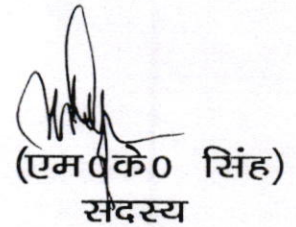 (एम०के० सिंह)
सदस्य